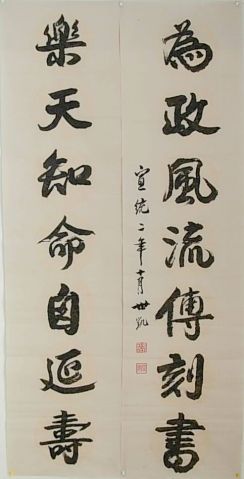 為政風流傳刻書
宣統二年十月 世凱
樂天知命自延壽